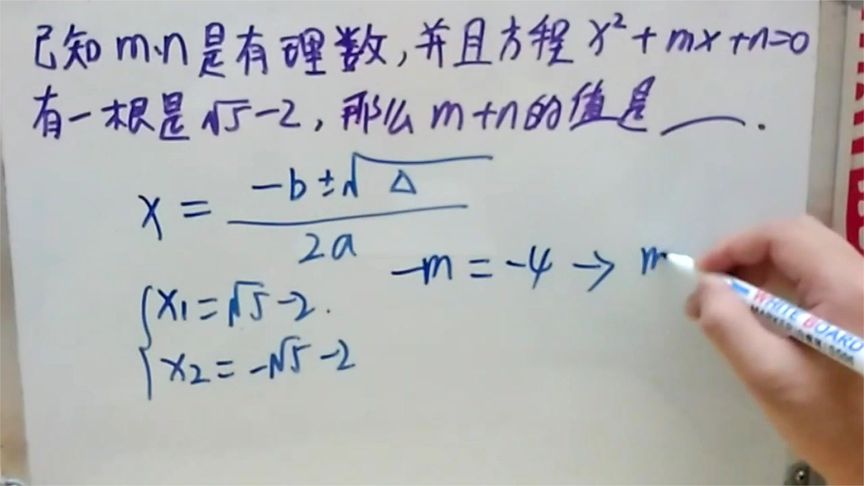 已知m、n是有理数,并且方程x²+mx+n=0
有一根是√5-2,那么m+n的值是____.
x=(-b±√Δ)/2a
-m=-4→m
x1=√5-2.
x2=-√5-2
WHITE BOARD